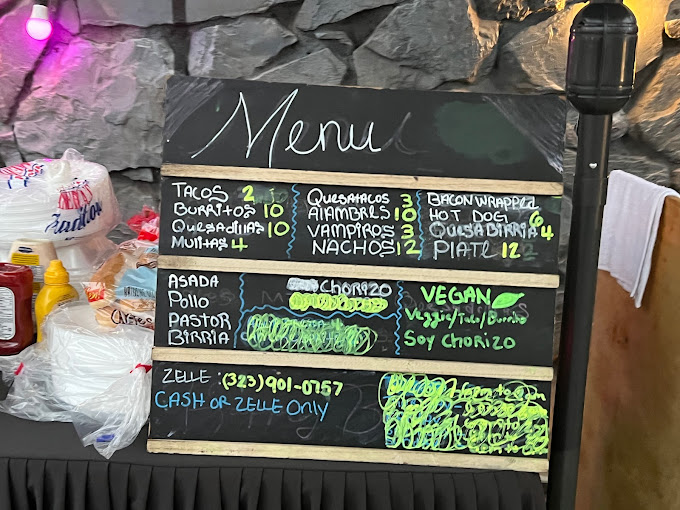 Menu
TACOS 2
BURRITOS 10
QUESADILLAS 10
MULITAS 4
QUESATACOS 3
AlAMBRES 10
VAMPIROS 3
NACHOS 12
BACON WRAPPED
HOT DOG 6
QUESABIRRIA 4
PlATE 12
ASADA
Pollo
PASTOR
BIRRIA
CHORIZO
VEGAN
Veggie/Taco/Burrito
Soy CHORIZO
ZELLE : (323) 901-0757
CASH OR ZELLE Only